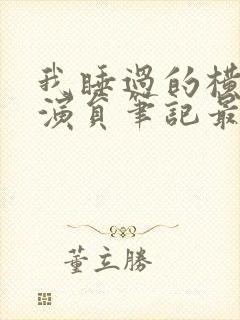 我睡過的橫
演員筆記最
董立勝